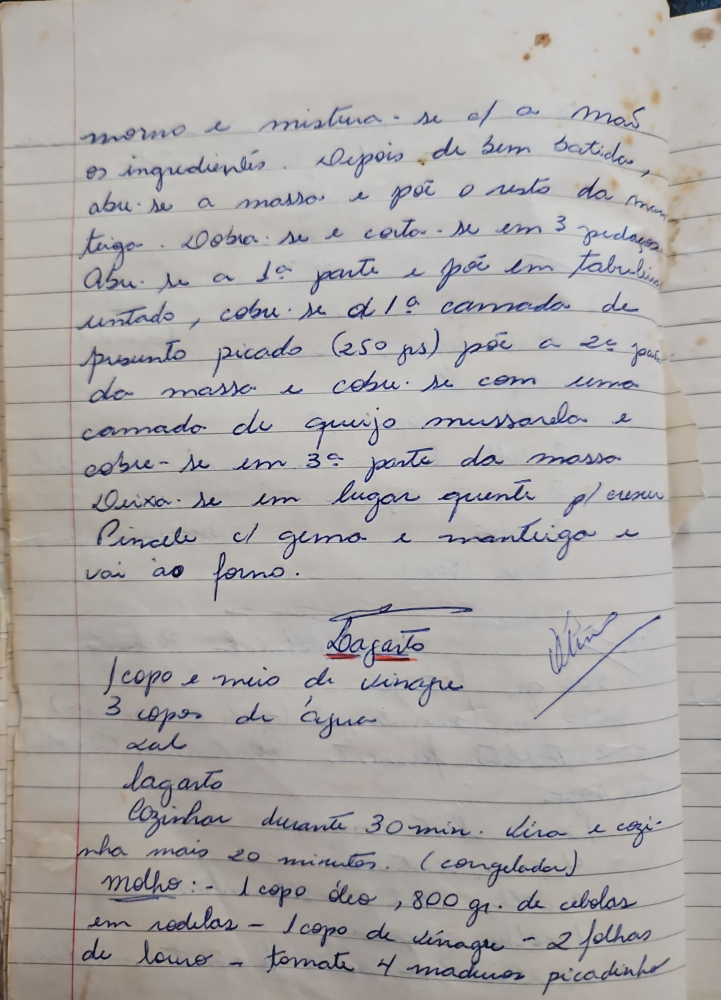 morno e mistura-se c/ a mão
os ingredientes. Depois de bem batida,
abre-se a massa e põe o resto da man
teiga. Dobra-se e corta-se em 3 pedaços
Abre-se a 1ª parte e põe em tabuleiro
untado, cobre-se c/ 1ª camada de
presunto picado (250 grs) põe a 2ª par
da massa e cobre-se com uma
camada de queijo mussarela e
cobre-se em 3ª parte da massa
Deixa-se em lugar quente p/ crescer
Pincele c/ gema e manteiga e
vai ao forno.
Lagarto
1 copo e meio de vinagre
3 copos de água
sal
lagarto
Cozinhar durante 30 min. Vira e cozi-
nha mais 20 minutos. (congelador)
Molho:- 1 copo óleo, 800 gr. de cebolas
em rodelas - 1 copo de vinagre - 2 folhas
de louro - tomate 4 maduros picadinho